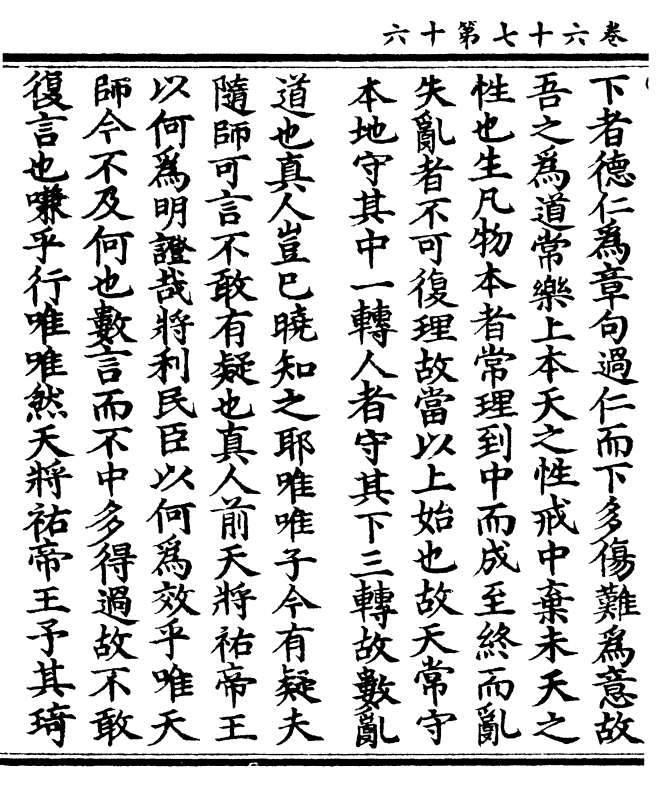 卷六十七第十六
下者德仁爲章句過仁而下多傷難爲意故
吾之爲道常樂上本天之性戒中棄末天之
性也生凡物本者常理到中而成至終而亂
失亂者不可復理故當以上始也故天常守
本地守其中一轉人者守其下三轉故數亂
道也真人豈已曉知之耶唯唯子今有疑夫
隨師可言不敢有疑也真人前天將祐帝王
以何爲明證哉將利民臣以何爲效乎唯天
師今不及何也數言而不中多得過故不敢
復言也嗛乎行唯唯然天將祐帝王予其琦